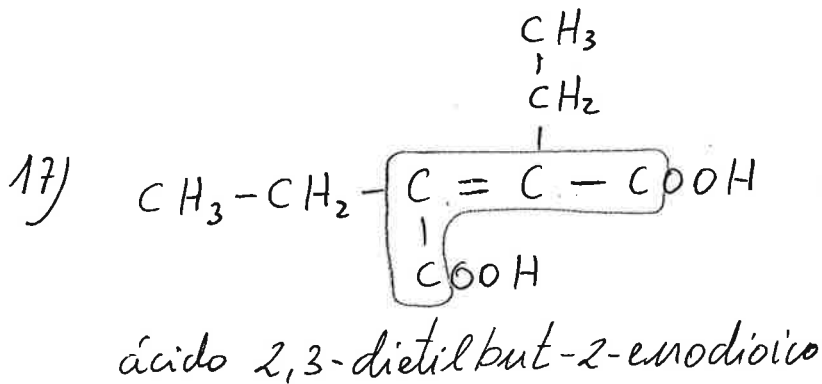 CH₃
CH₂
17) CH₃-CH₂-C=C-COOH
COOH
ácido 2,3-dietilbut-2-enodioico